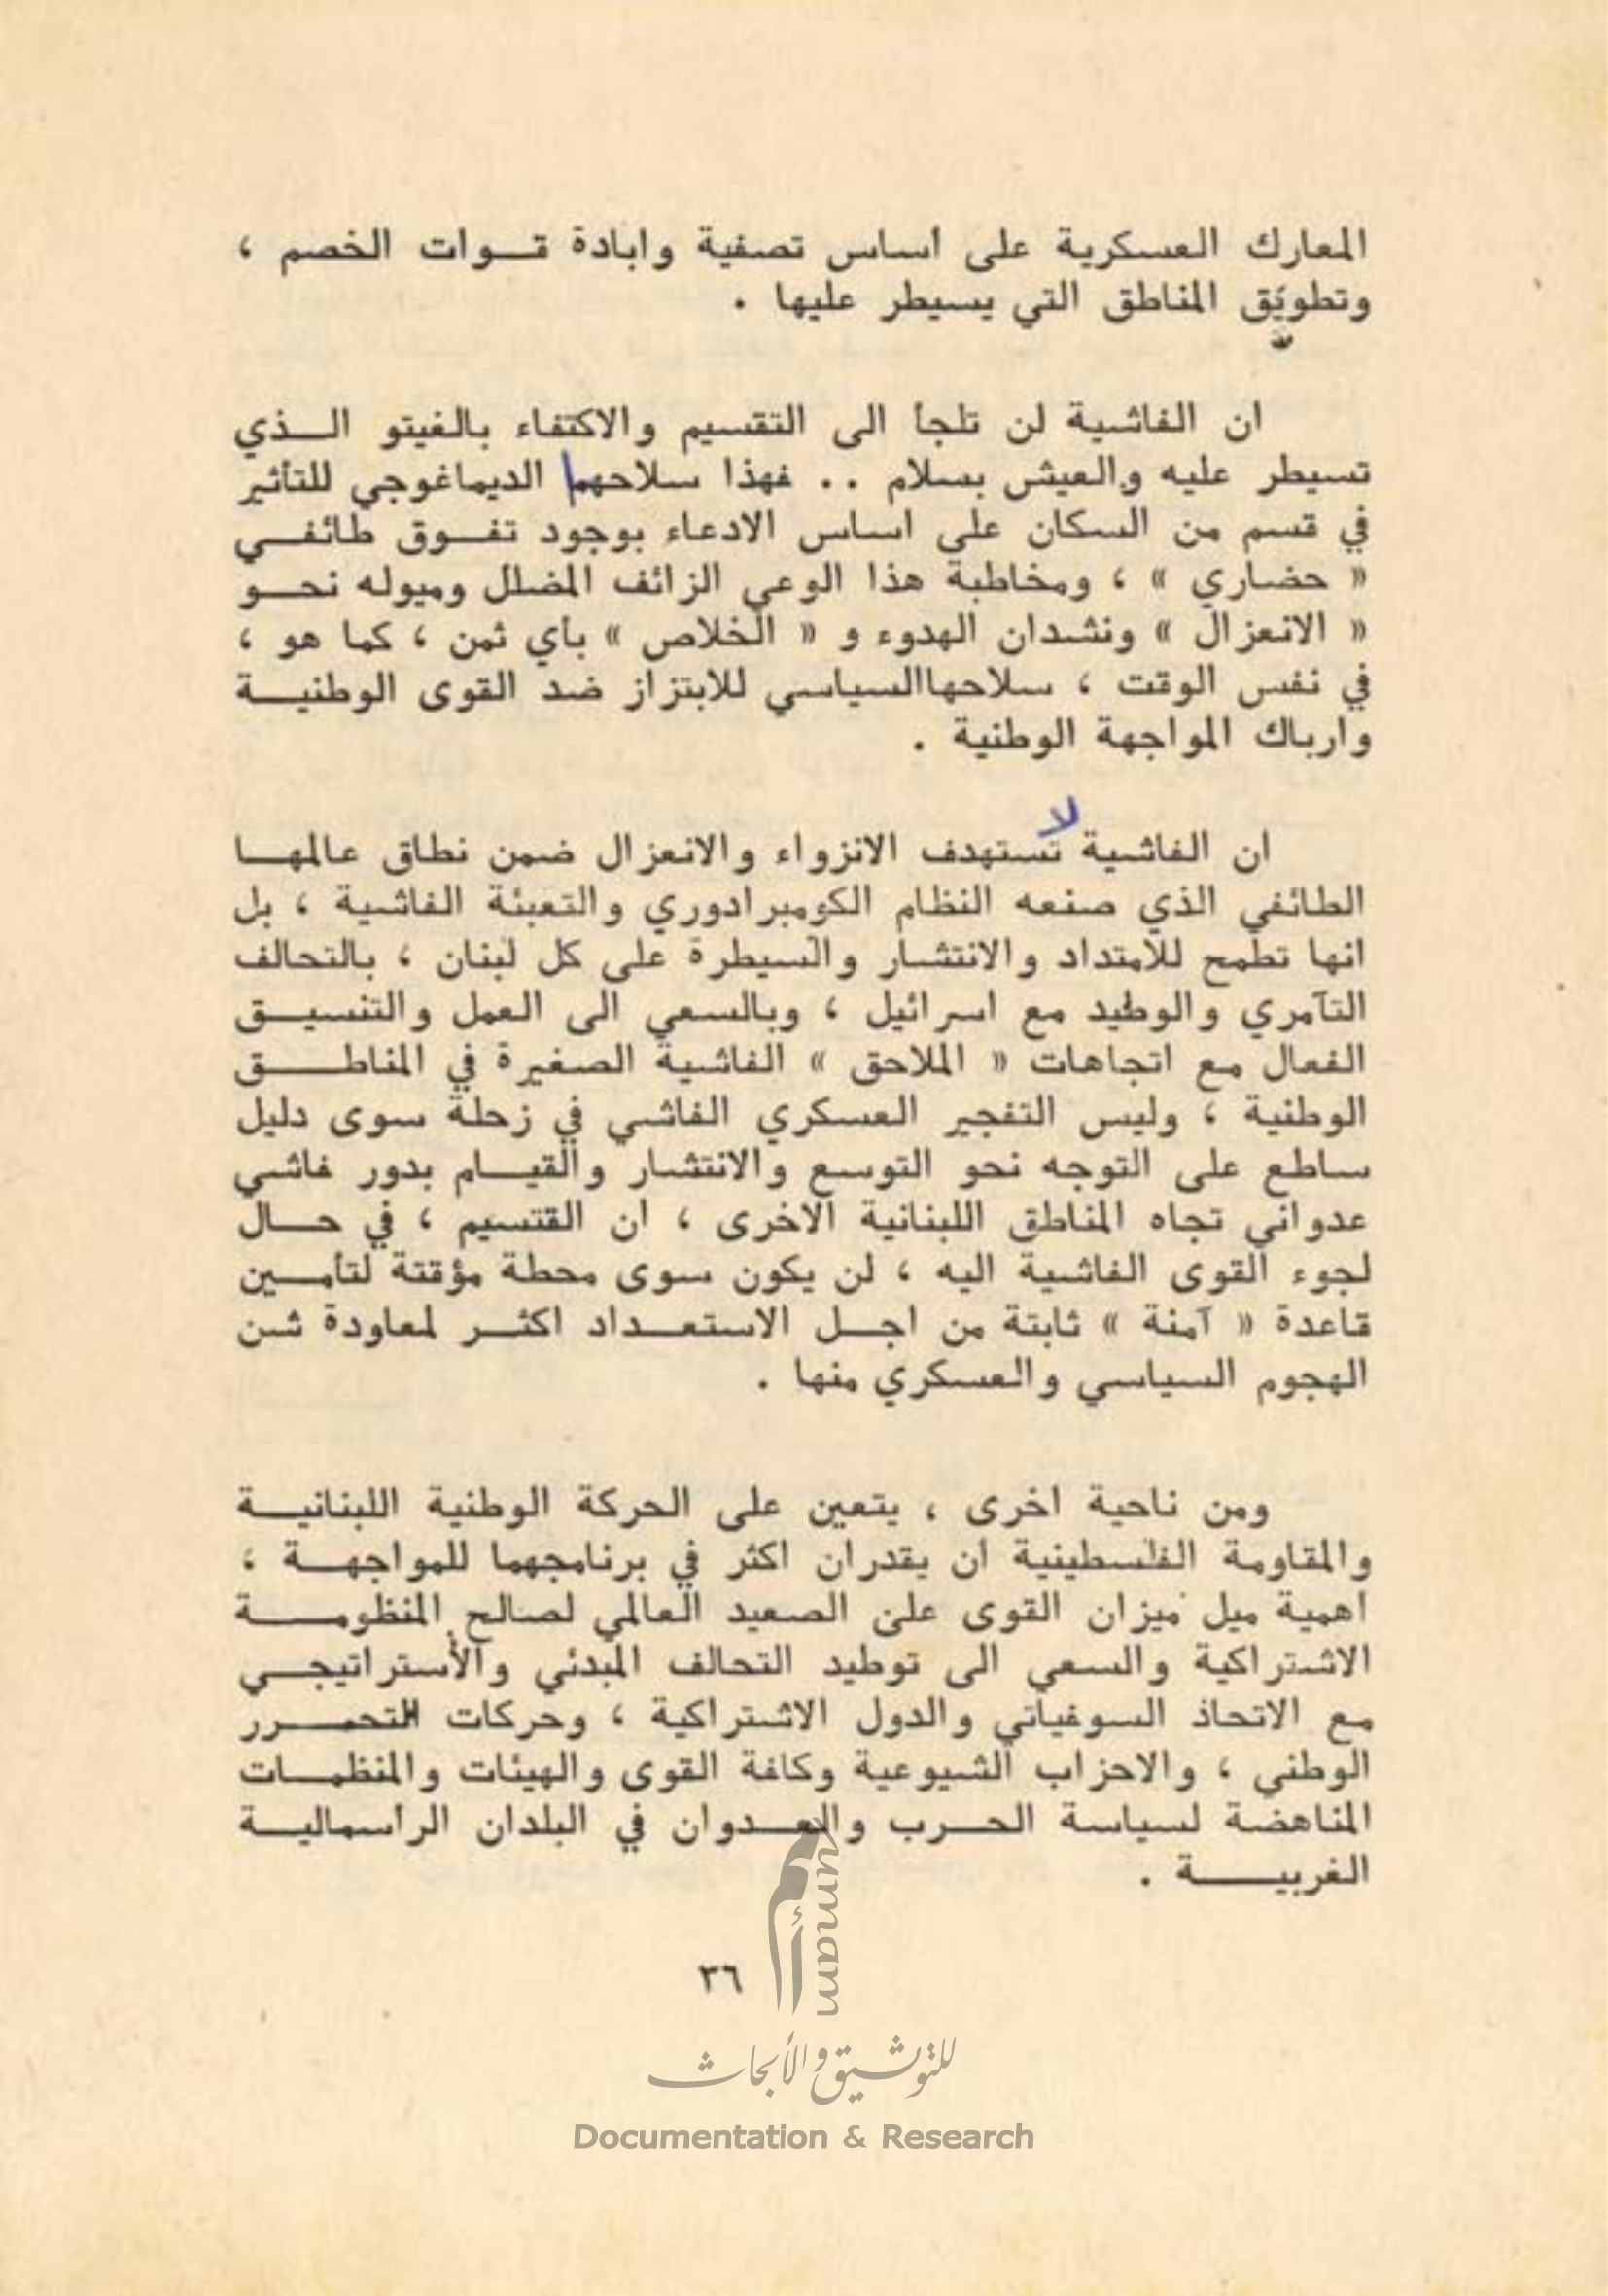 المعارك العسكرية على أساس تصفية وابادة قـــوات الخصم ،
وتطويق المناطق التي يسيطر عليها .
ان الفاشية لن تلجأ الى التقسيم والاكتفاء بالغيتو الـــذي
تسيطر عليه والعيش بسلام .. فهذا سلاحها الديماغوجي للتأثير
في قسم من السكان على اساس الادعاء بوجود تفـــوق طائفـــي
« حضاري » ، ومخاطبة هذا الوعي الزائف المضلل وميوله نحـــو
« الانعزال » ونشدان الهدوء و « الخلاص » بأي ثمن ، كما هو ،
في نفس الوقت ، سلاحهاالسياسي للابتزاز ضد القوى الوطنيـــة
وارباك المواجهة الوطنية .
لا
ان الفاشية تستهدف الانزواء والانعزال ضمن نطاق عالمهـــا
الطائفي الذي صنعه النظام الكومبرادوري والتعبئة الفاشية ، بل
انها تطمح للامتداد والانتشار والسيطرة على كل لبنان ، بالتحالف
التآمري والوطيد مع اسرائيل ، وبالسعي الى العمل والتنسيـــق
الفعال مع اتجاهات « الملاحق » الفاشية الصغيرة في المناطـــق
الوطنية ، وليس التفجير العسكري الفاشي في زحلة سوى دليل
ساطع على التوجه نحو التوسع والانتشار والقيـــام بدور فاشي
عدواني تجاه المناطق اللبنانية الاخرى ، ان القتسيم ، في حـــال
لجوء القوى الفاشية اليه ، لن يكون سوى محطة مؤقتة لتأمـــين
قاعدة « آمنة » ثابتة من اجـــل الاستعـــداد اكثـــر لمعاودة شن
الهجوم السياسي والعسكري منها .
ومن ناحية اخرى ، يتعين على الحركة الوطنية اللبنانيـــة
والمقاومة الفلسطينية ان يقدران اكثر في برنامجهما للمواجهـــة ،
اهمية ميل ميزان القوى على الصعيد العالمي لصالح المنظومـــة
الاشتراكية والسعي الى توطيد التحالف المبدئي والأستراتيجـــي
مع الاتحاذ السوفياتي والدول الاشتراكية ، وحركات التحـــرر
الوطني ، والاحزاب الشيوعية وكافة القوى والهيئات والمنظمـــات
المناهضة لسياسة الحـــرب والعـــدوان في البلدان الرأسماليـــة
الغربيـــة .
٣٦
أمم
umam
للتوثيق والأبحاث
Documentation & Research